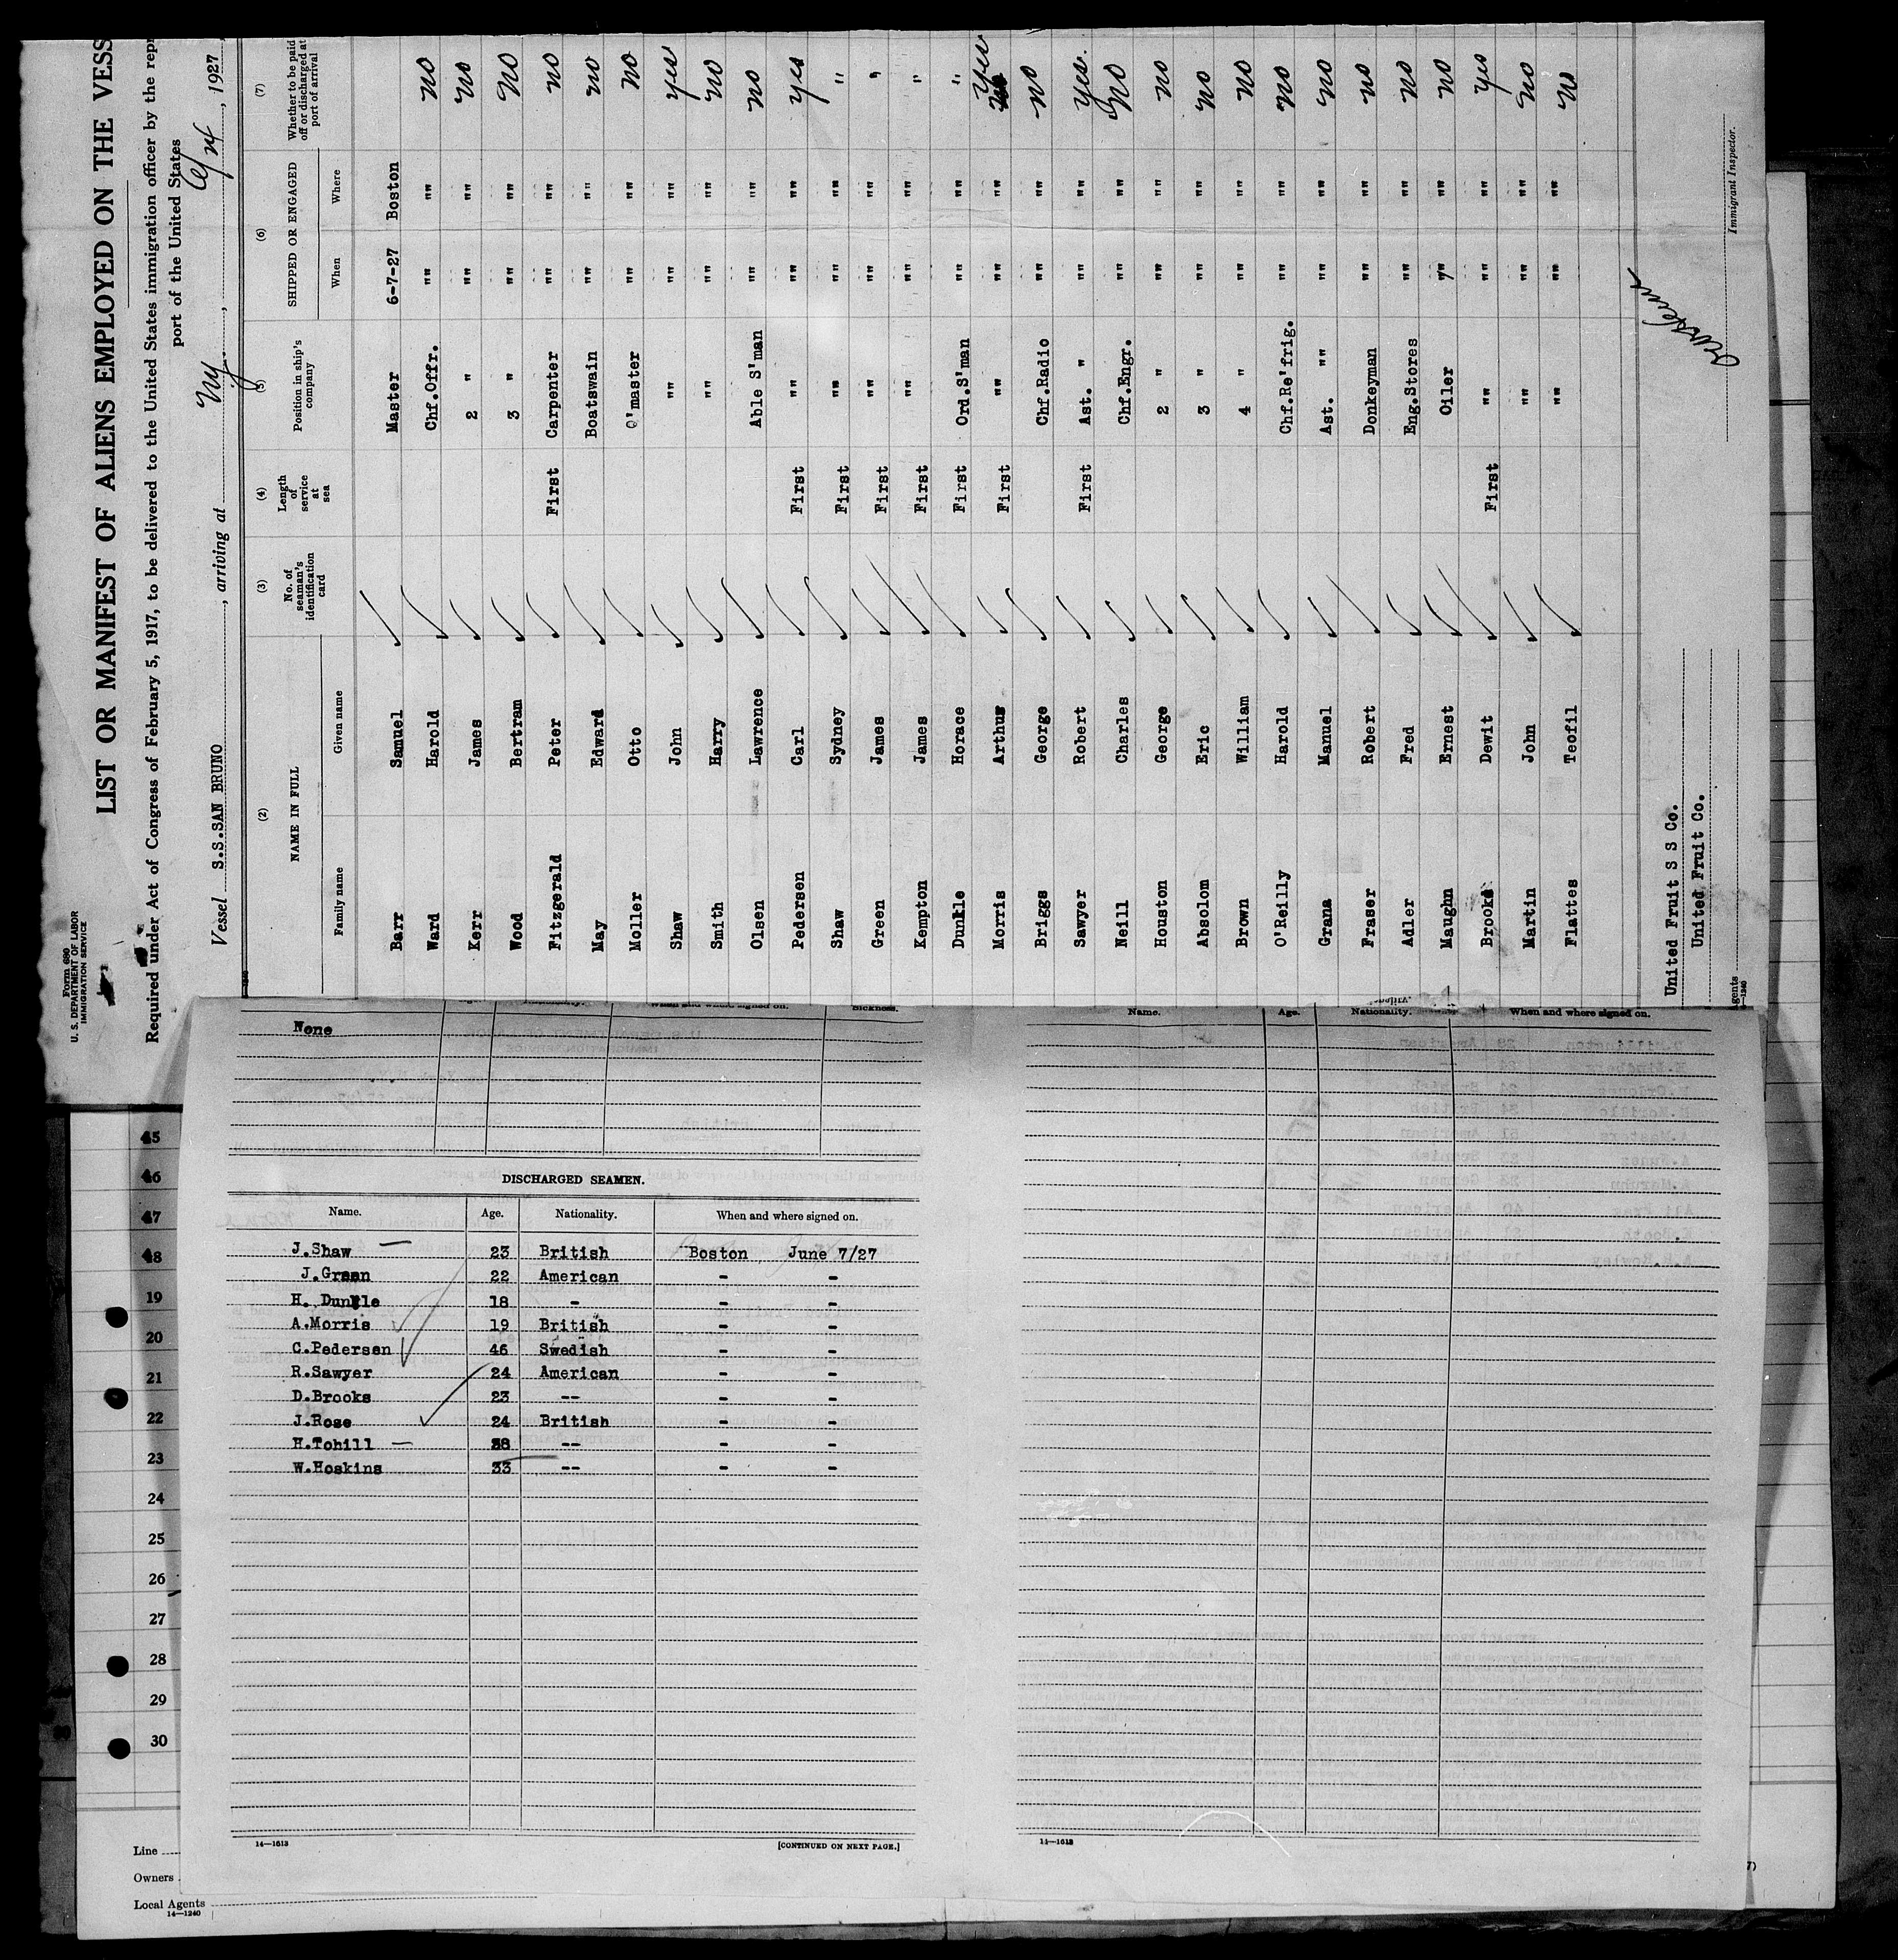 Form 680
U. S. DEPARTMENT OF LABOR
IMMIGRATION SERVICE
LIST OR MANIFEST OF ALIENS EMPLOYED ON THE VESS
Required under Act of Congress of February 5, 1917, to be delivered to the United States immigration officer by the repr
port of the United States
Vessel S.S.SAN BRUNO, arriving at Ny, 6/24, 1927
(2) (3) (4) (5) (6) (7)
NAME IN FULL No. of seaman's identification card Length of service at sea Position in ship's company SHIPPED OR ENGAGED Whether to be paid off or discharged at port of arrival
Family name Given name When Where
Barr Samuel Master 6-7-27 Boston
Ward Harold Chf.Offr. "" "" no
Kerr James 2 " "" "" no
Wood Bertram 3 " "" "" no
Fitzgerald Peter First Carpenter "" "" no
May Edward Boatswain "" "" no
Moller Otto Q'master "" "" no
Shaw John "" "" "" yes
Smith Harry "" "" "" no
Olsen Lawrence Able S'man "" "" no
Pedersen Carl First "" "" "" yes
Shaw Sydney First "" "" "" "
Green James First "" "" "" "
Kempton James First "" "" "" "
Dunkle Horace First Ord.S'man "" "" "
Morris Arthur First "" "" "" yes
Briggs George Chf.Radio "" "" no
Sawyer Robert First Ast. " "" "" yes.
Neill Charles Chf.Engr. "" "" no
Houston George 2 " "" "" no
Absolom Eric 3 " "" "" no
Brown William 4 " "" "" no
O'Reilly Harold Chf.Re'frig. "" "" no
Grana Manuel Ast. "" "" "" no
Fraser Robert Donkeyman "" "" no
Adler Fred Eng.Stores "" "" no
Maughn Ernest Oiler "" "" no
Brooks Dewit First "" "" "" yes
Martin John "" "" "" no
Flattes Teofil "" "" "" no
United Fruit S S Co.
United Fruit Co.
Agents
Immigrant Inspector.
When and where signed on. Sickness.
None
DISCHARGED SEAMEN.
Name. Age. Nationality. When and where signed on.
J.Shaw 23 British Boston June 7/27
J.Green 22 American - -
H. Dunkle 18 - - -
A.Morris 19 British - -
C.Pedersen 46 Swedish - -
R.Sawyer 24 American - -
D.Brooks 23 -- - -
J.Rose 24 British - -
H.Tohill 38 -- - -
W.Hoskins 33 -- - -
14—1613 [CONTINUED ON NEXT PAGE.]
Name. Age. Nationality. When and where signed on.
14—1613
45
46
47
48
19
20
21
22
23
24
25
26
27
28
29
30
Line
Owners
Local Agents
14—1240